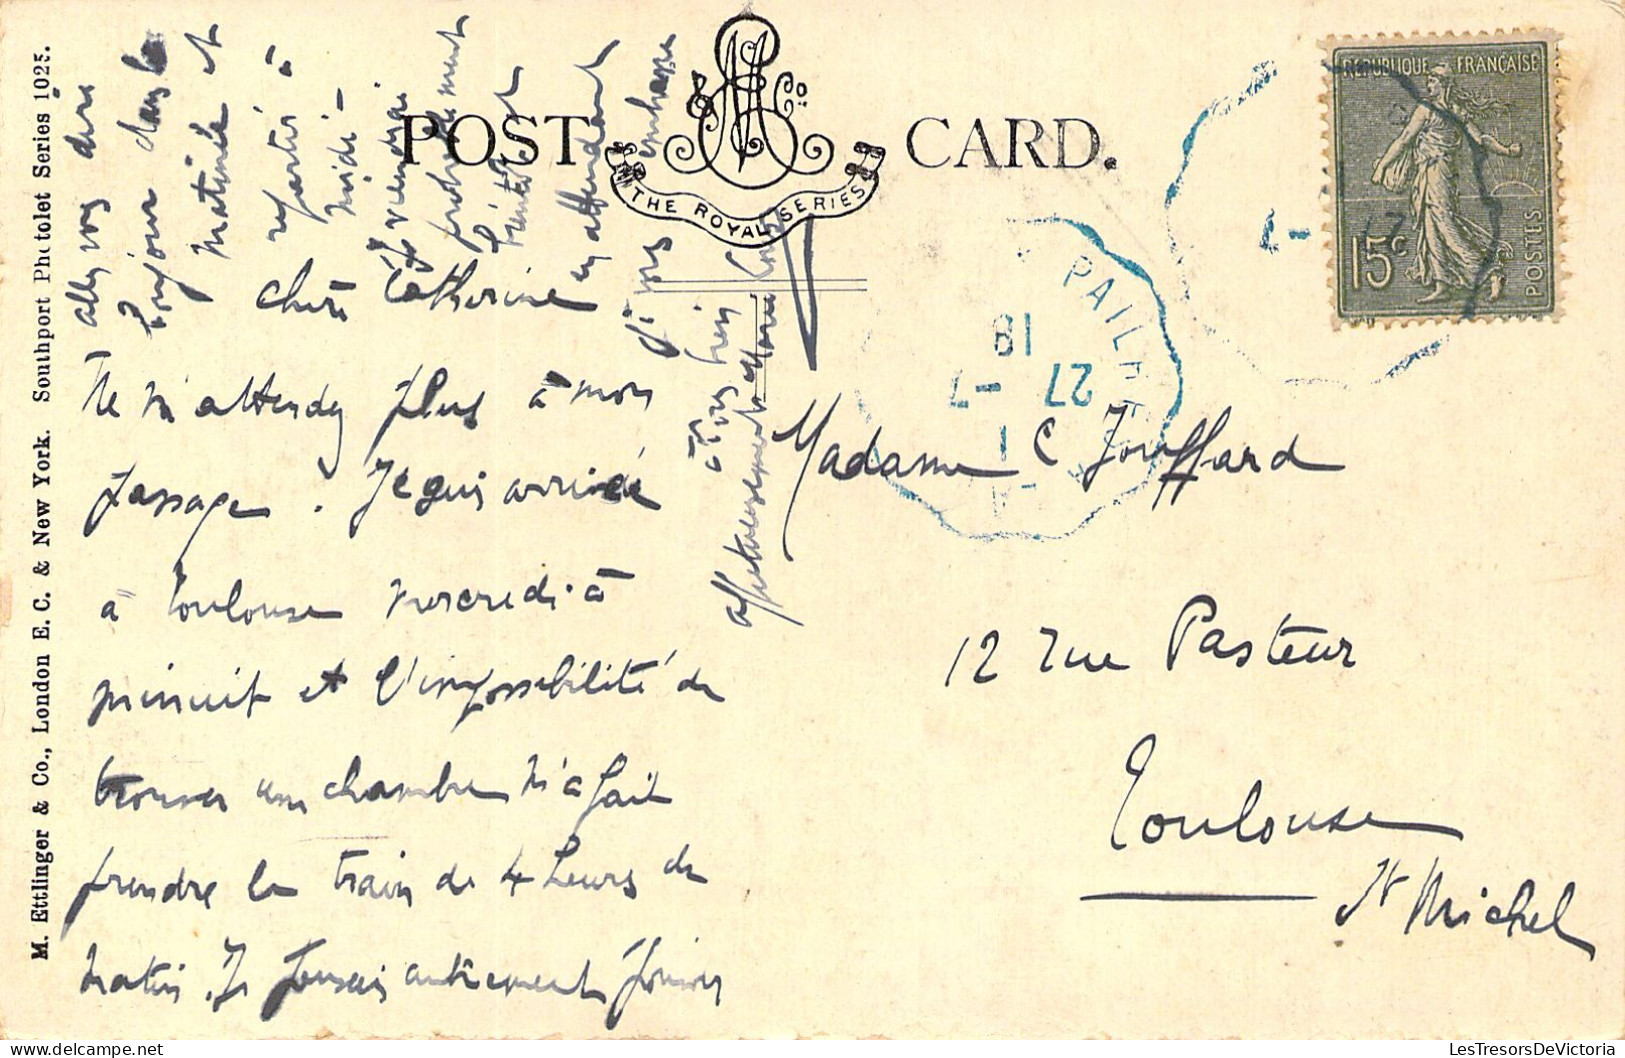 POST CARD.
THE ROYAL SERIES
M. Ettlinger & Co., London E. C. & New York. Southport Photolet Series 1025.
REPUBLIQUE FRANÇAISE
15c
POSTES
18
27 -7
chère Catherine
Ne m'attendez plus à mon
passage. Je suis arrivée
à Toulouse mercredi à
minuit et l'impossibilité de
trouver une chambre m'a fait
prendre le train de 4 heures du
matin. Je pensais autrement pouvoir
aller vous dire
bonjour dans la
matinée et
repartir à
midi -
Je viendrai
probablement
bientôt
en attendant
je vous embrasse
affectueusement
Madame C Jouffard
12 rue Pasteur
Toulouse
St Michel
LesTresorsDeVictoria